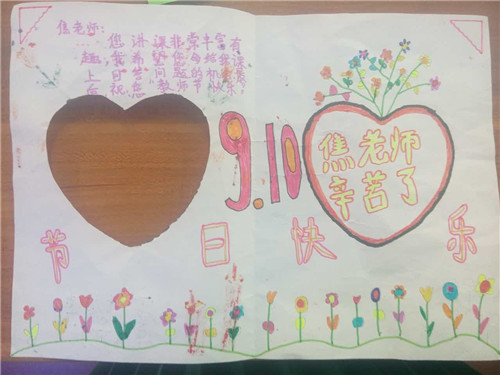 焦老师:
您讲课非常丰富有
趣,我希望您
上 问题的机
祝您教师节快乐
9.10
焦老师
辛苦了
节日快乐